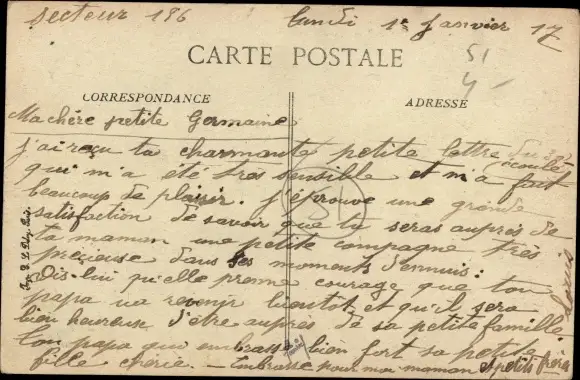 secteur 186 lundi 1er janvier 17
51
4 -
CARTE POSTALE
CORRESPONDANCE
ADRESSE
Ma chère petite Germaine
j'ai reçu ta charmante petite lettre
qui m'a été très sensible et m'a fait
beaucoup de plaisir. j'éprouve une grande
satisfaction de savoir que tu seras auprès de
ta maman une petite compagne très
précieuse dans les moments d'ennuis.
Dis-lui qu'elle prenne courage que ton
papa va revenir bientôt et qu'il sera
bien heureuse d'être auprès de sa petite famille
Ton papa qui embrasse bien fort sa petite
fille chérie. - Embrasse pour moi maman et petits frères
51